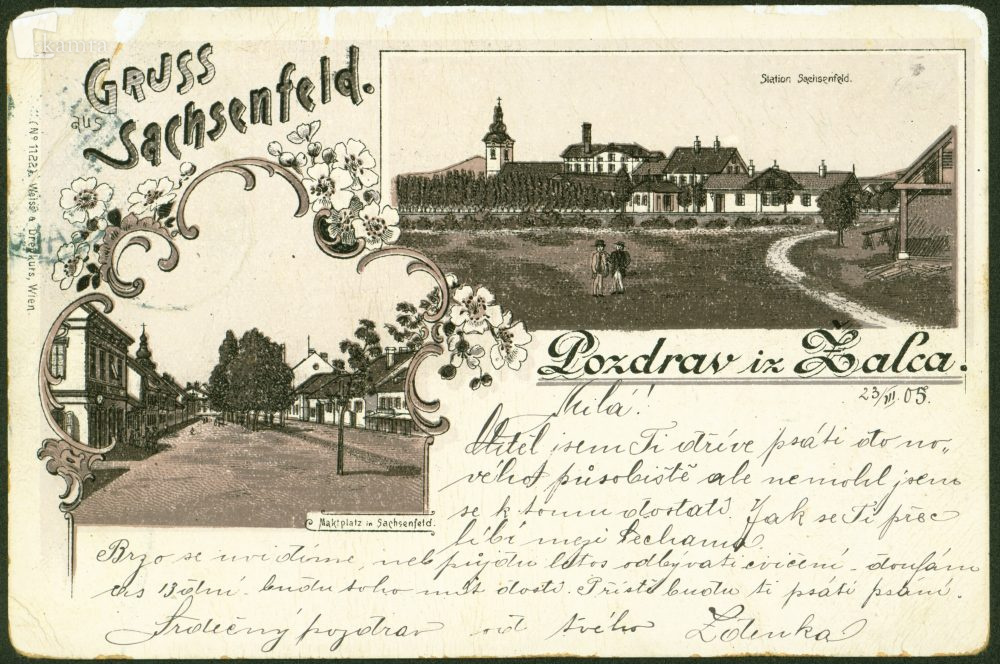 kamra
GRUSS
aus
Sachsenfeld.
Station Sachsenfeld.
(Nº 1122a Weiss u. Dreykurs, Wien
Pozdrav iz Žalca.
23/VII. 05.
Milá!
Chtěl jsem Ti dříve psáti do no-
vého působiště ale nemohl jsem
se k tomu dostati. Jak se Ti přec
líbí mezi Čechama.
Maktplatz in Sachsenfeld.
Brzo se uvidíme, neb půjdu letos odbývati cvičení - doufám
13 dní budu toho mít dosti. Příště budu ti psáti psaní.
Srdečný pozdrav od tvého Zdenka